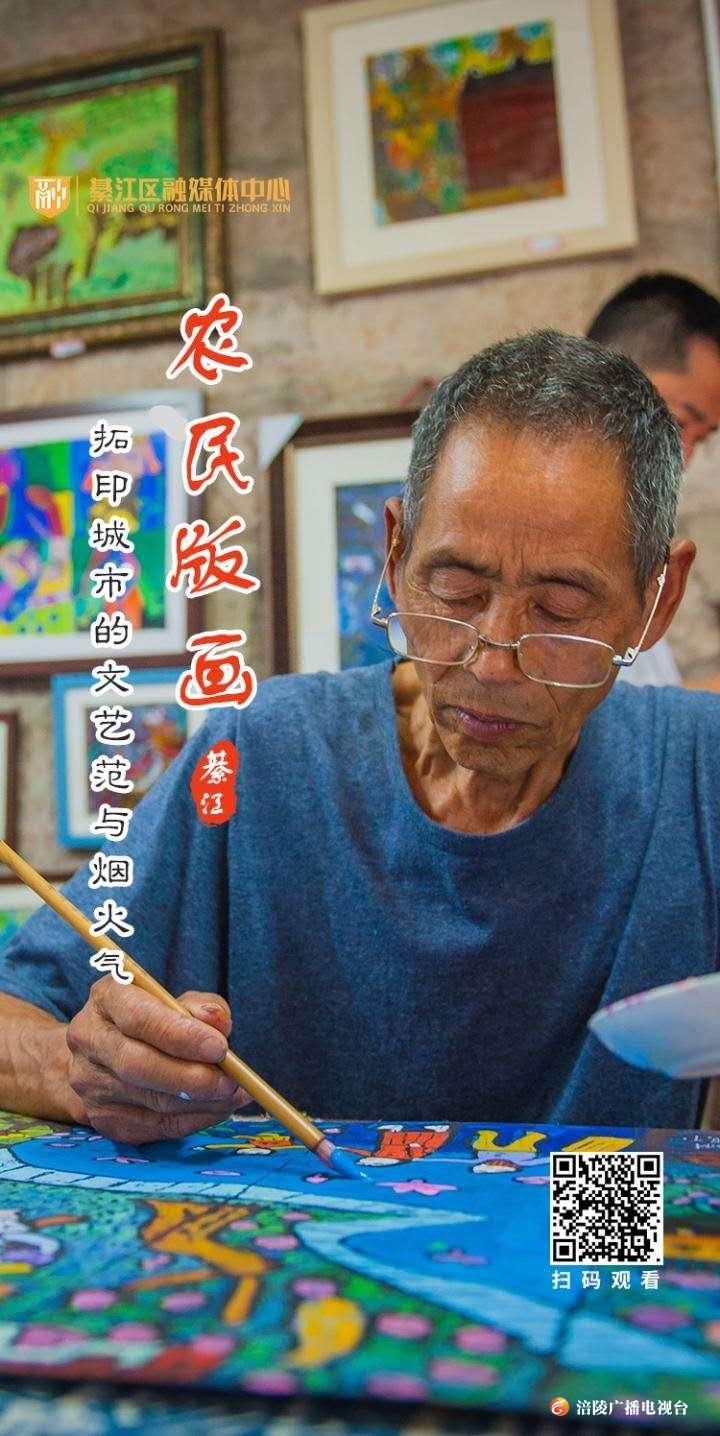 綦江区融媒体中心
QI JIANG QU RONG MEI TI ZHONG XIN
农民版画
綦江
拓印城市的文艺范与烟火气
扫码观看
涪陵广播电视台